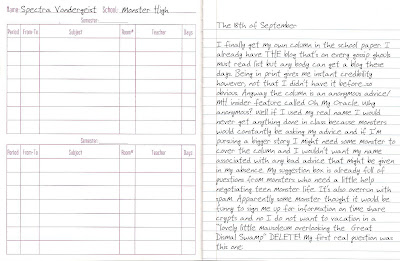 Name Spectra Vondergeist School: Monster High
Semester:
Period From-To Subject Room# Teacher Days
Semester:
Period From-To Subject Room# Teacher Days
The 18th of September
I finally get my own column in the school paper. I
already have THE blog that's on every gossip ghoul's
must read list but any body can get a blog these
days. Being in print gives me instant credibility
however, not that I didn't have it before so
obvious. Anyway the column is an anonymous advice/
MH insider feature called Oh My Oracle. Why
anonymous? Well if I used my real name I would
never get anything done in class because monsters
would constantly be asking my advice and if I'm
pursuing a bigger story I might need some monster to
cover the column and I wouldn't want my name
associated with any bad advice that might be given
in my absence. My suggestion box is already full of
questions from monsters who need a little help
negotiating teen monster life. It's also overrun with
spam. Apparently some monster thought it would be
funny to sign me up for information on time share
crypts and no I do not want to vacation in a
"lovely little mausoleum overlooking the Great
Dismal Swamp" DELETE! My first real question was
this one: